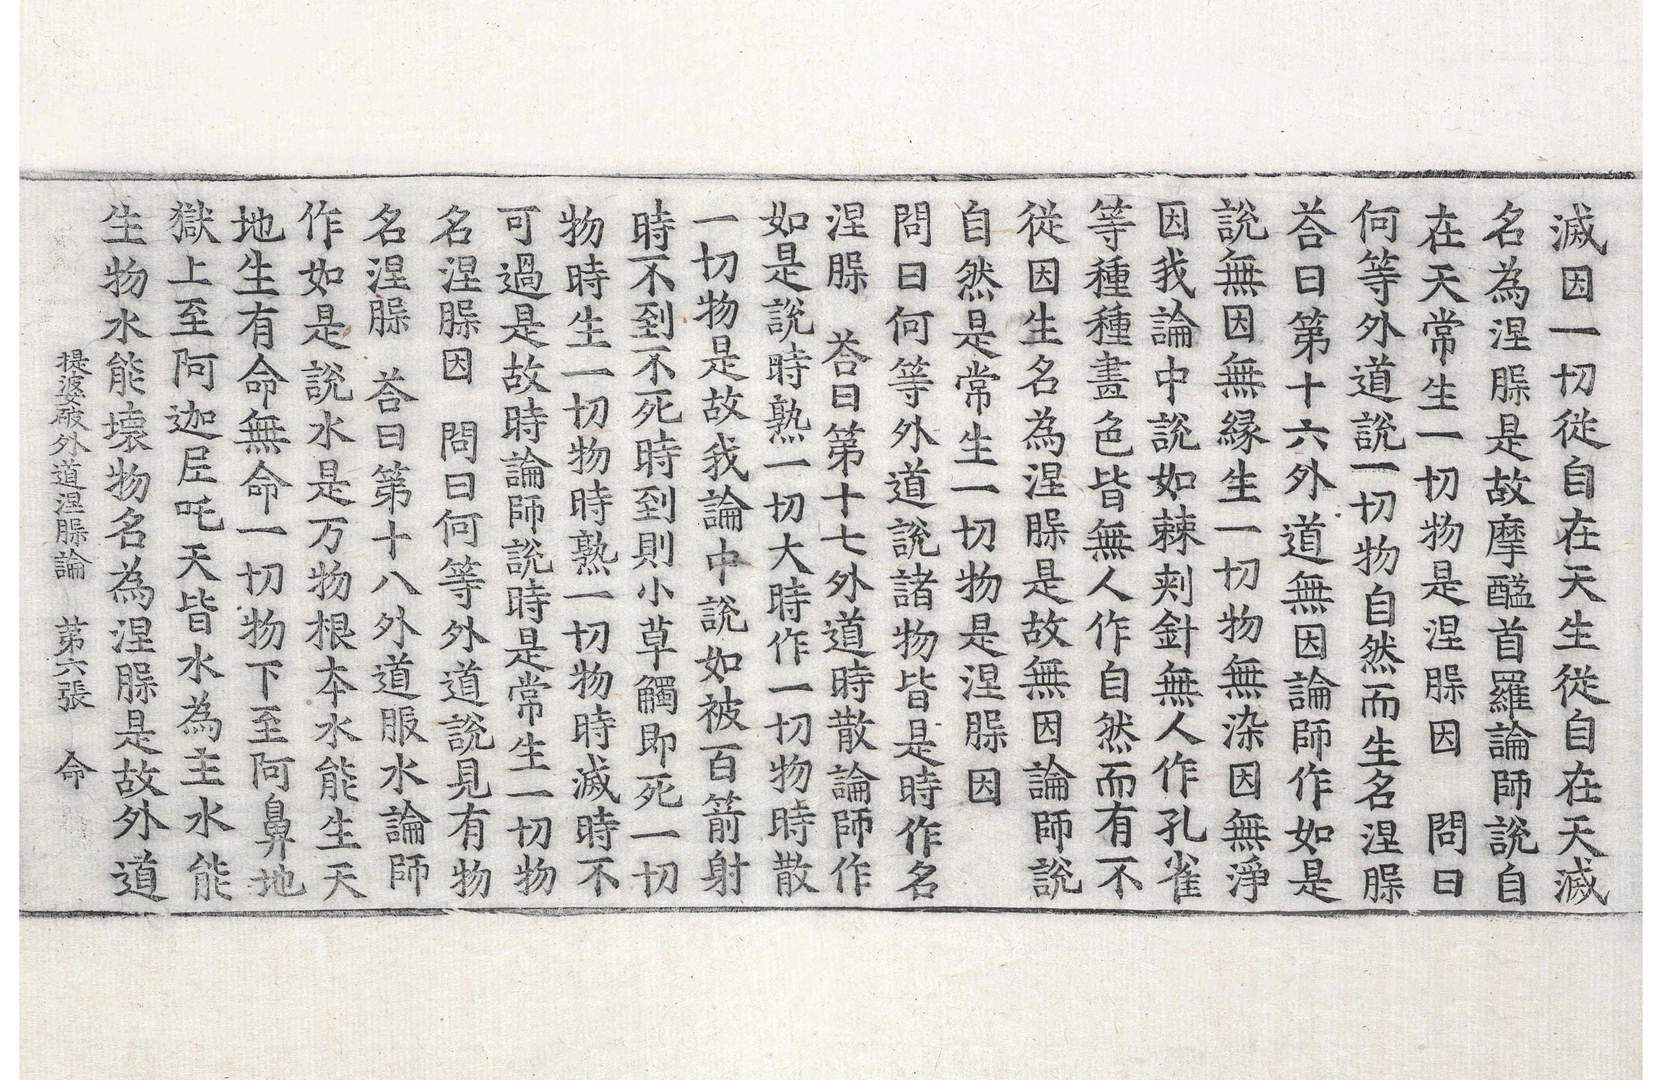 滅因一切從自在天生從自在天滅
名為涅槃是故摩醯首羅論師說自
在天常生一切物是涅槃因　問曰
何等外道說一切物自然而生名涅槃
荅曰第十六外道無因論師作如是
說無因無緣生一切物無染因無淨
因我論中說如棘刾針無人作孔雀
等種種畫色皆無人作自然而有不
從因生名為涅槃是故無因論師說
自然是常生一切物是涅槃因
問曰何等外道說諸物皆是時作名
涅槃　荅曰第十七外道時散論師作
如是說時熟一切大時作一切物時散
一切物是故我論中說如被百箭射
時不到不死時到則小草觸即死一切
物時生一切物時熟一切物時滅時不
可過是故時論師說時是常生一切物
名涅槃因　問曰何等外道說見有物
名涅槃　荅曰第十八外道服水論師
作如是說水是万物根本水能生天
地生有命無命一切物下至阿鼻地
獄上至阿迦尼吒天皆水為主水能
生物水能壞物名為涅槃是故外道
提婆破外道涅槃論　第六張　命